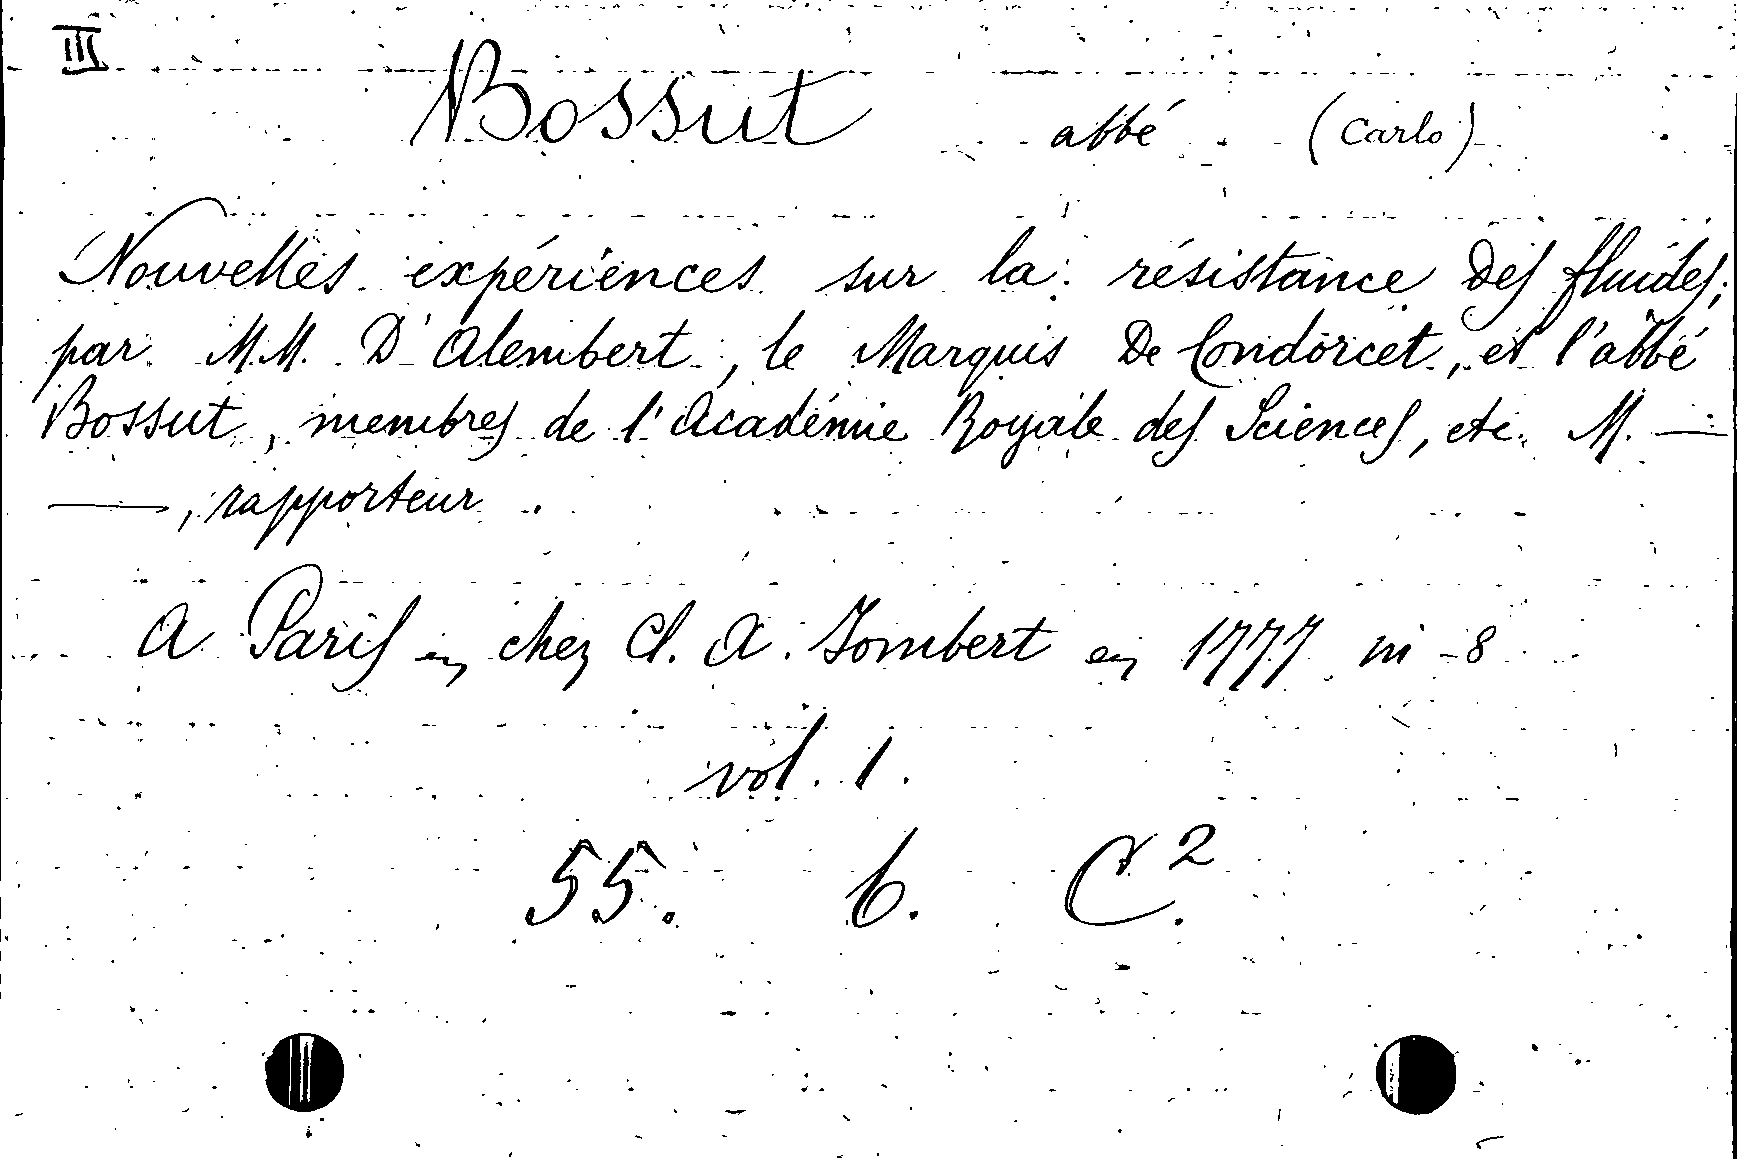 III
Bossut abbé (Carlo)
Nouvelles expériences sur la résistance des fluides;
par M.M. D'Alembert, le Marquis De Condorcet, et l'abbé
Bossut, membres de l'Académie Royale des Sciences, etc. M. —
—, rapporteur.
A Paris chez Cl. A. Jombert 1777 in-8
vol. 1.
55. 6. C².